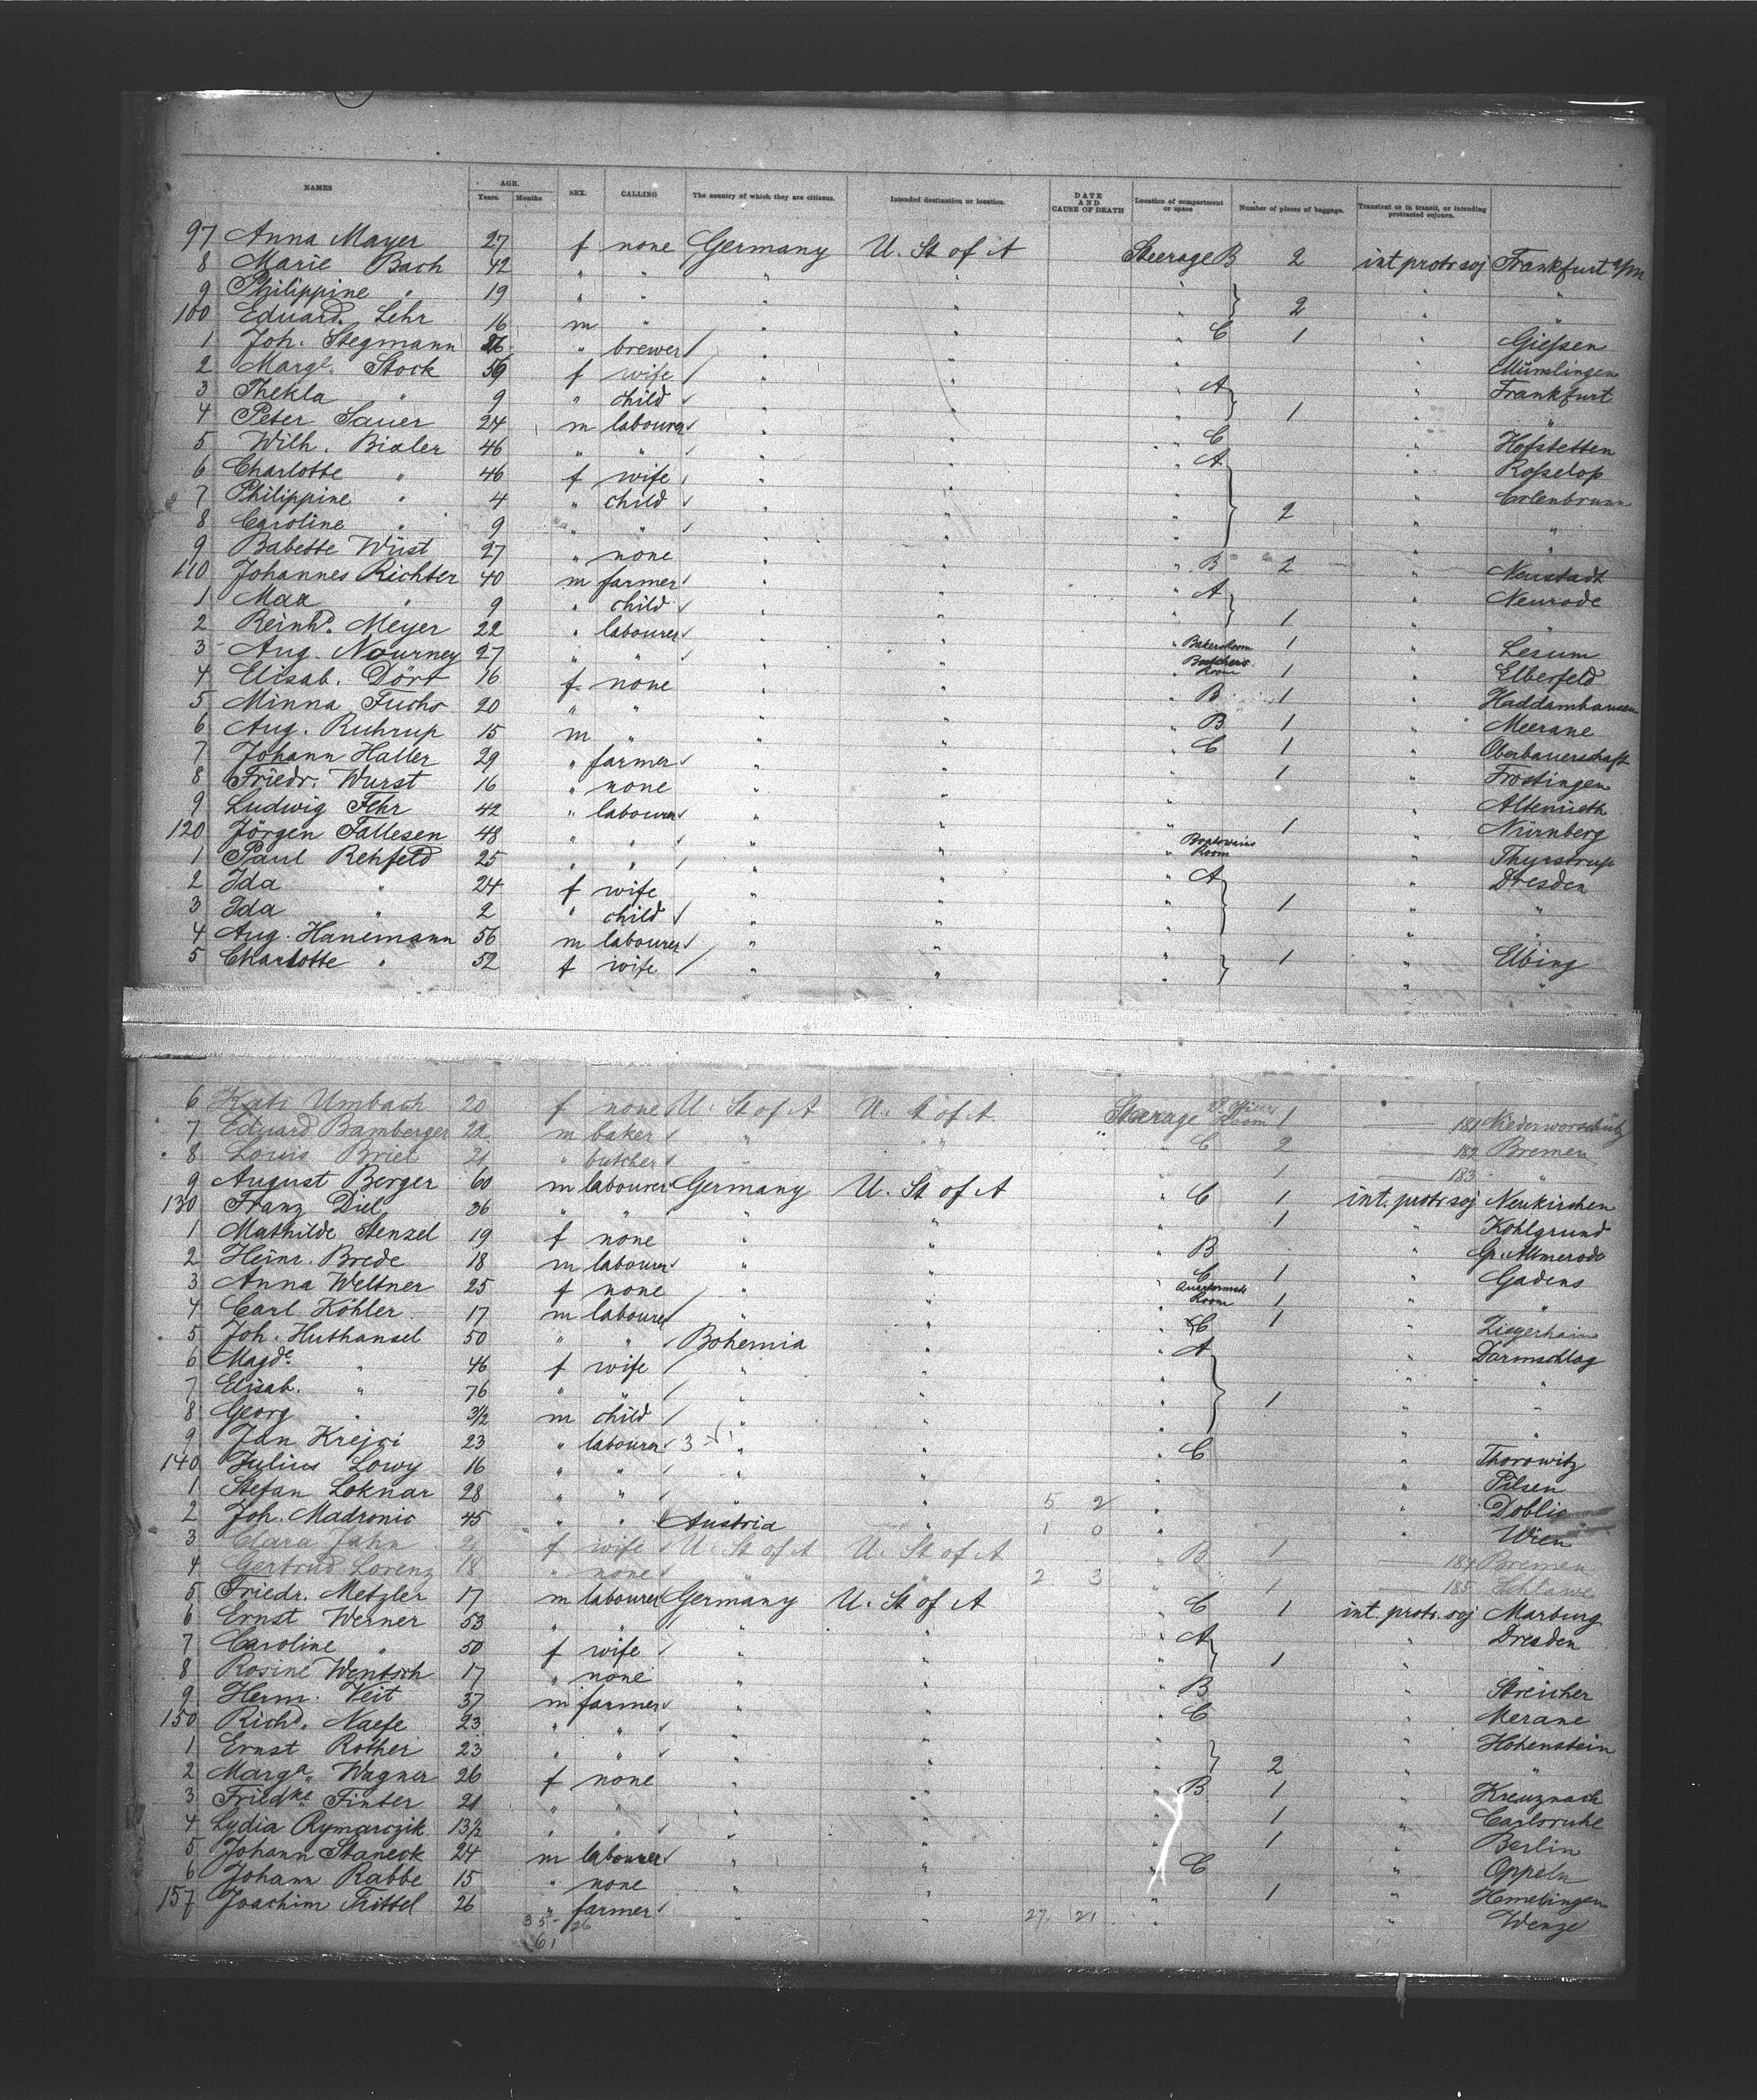 NAMES AGE. Years. Months SEX. CALLING The country of which they are citizens. Intended destination or location. DATE AND CAUSE OF DEATH Location of compartment or space Number of pieces of baggage. Transient or in transit, or intending protracted sojourn.
97 Anna Mayer 27 f none Germany U. St of A Steerage B 2 int protr soj Frankfurt a/m
8 Marie Bach 42 " " " " " " "
9 Philippine " 19 " " " " " } 2 " "
100 Eduard Lehr 16 m " " " " C 1 " Gießen
1 Joh. Stegmann 26 " brewer " " " " Münslingen
2 Marge. Stock 59 f wife " " " A " Frankfurt
3 Thekla " 9 " child " " " } 1 " "
4 Peter Sauer 24 m labourer " " " C " Hofstetten
5 Wilh. Bialer 46 " " " " " A "
6 Charlotte " 46 f wife " " " " Erlenbrunn
7 Philippine " 4 " child " " " } 2 " "
8 Caroline " 9 " " " " " " "
9 Babette Wüst 27 " none " " " B 2 " Neustadt
110 Johannes Richter 40 m farmer " " " A " Neurode
1 Max " 9 " child " " " } 1 " "
2 Reinhd. Meyer 22 " labourer " " " Bakers Room 1 " Lesum
3 Aug. Nourney 27 " " " " " Butchers Room 1 " Elberfeld
4 Elisab. Dört 16 f none " " " B 1 " Haddamhausen
5 Minna Fuchs 20 " " " " " B 1 " Meerane
6 Aug. Ruhrup 15 m " " " " C 1 " Oberbauerschaft
7 Johann Haller 29 " farmer " " " 1 " Frostingen
8 Friedr. Wurst 16 " none " " " " Altenrieth
9 Ludwig Fehr 42 " labourer " " " 1 " Nürnberg
120 Jörgen Fallesen 48 " " " " " Boatswains Room " Thyrstrup
1 Paul Rehfeld 25 " " " " " A " Dresden
2 Ida " 24 f wife " " " } 1 " "
3 Ida " 2 " child " " " " "
4 Aug. Hanemann 56 m labourer " " " 1 " Elbing
5 Charlotte " 52 f wife " " " } " "
6 Kati Umbach 20 f none U. St of A U. St of A Steerage Room 1 — 181
7 Eduard Bamberger 22 m baker " " " C 2 — 182 Bremen
8 Louis Briel 21 " butcher " " " 1 — 183 "
9 August Berger 60 m labourer Germany U. St of A " C 1 int. protr soj Neukirchen
130 Franz Diel 26 " " " " " 1 " Kohlgrund
1 Mathilde Stenzel 19 f none " " " B " Gr. Almerode
2 Heinr. Brede 18 m labourer " " " C 1 " Gadens
3 Anna Weltner 25 f none " " " Room 1 " "
4 Carl Köhler 17 m labourer " " " C 1 " Ziegerhain
5 Joh. Huthansel 50 " " Bohemia " " A " Darmschlag
6 Magde. " 46 f wife " " " " "
7 Elisab. " 76 " " " " " } 1 " "
8 Georg " 3 1/2 m child " " " " "
9 Jan Krejci 23 " labourer 3 - 1 " " " C " Thorowitz
140 Julius Lowy 16 " " " " " " Pilsen
1 Stefan Loknar 28 " " " " 5 2 " " Doblic
2 Joh. Madronic 45 " " Austria " 1 0 " " Wien
3 Clara Jahn f wife U. St of A U. St of A " B 1 — 184 Bremen
4 Gertrud Lorenz 18 " none " " 2 3 " 1 — 185 Schlawe
5 Friedr. Metzler 17 m labourer Germany U. St of A " C 1 int. protr. soj Marburg
6 Ernst Werner 53 " " " " " A " Dresden
7 Caroline " 50 f wife " " " } 1 " "
8 Rosine Wentsch 17 " none " " " B " Streicher
9 Herm. Veit 37 m farmer " " " C " Merane
150 Richd. Naefe 23 " " " " " " Hohenstein
1 Ernst Rother 23 " " " " " } 2 " "
2 Marga. Wagner 26 f none " " " B 1 " Kreuznach
3 Friedke. Finter 21 " " " " " 1 " Carlsruhe
4 Lydia Rymarczik 13 1/2 " " " " " 1 " Berlin
5 Johann Staneck 24 m labourer " " " C " Oppeln
6 Johann Rabbe 15 " none " " " 1 " Hemelingen
157 Joachim Trittel 26 " farmer " " 27. 21 " " Wenze
35 - 26
61